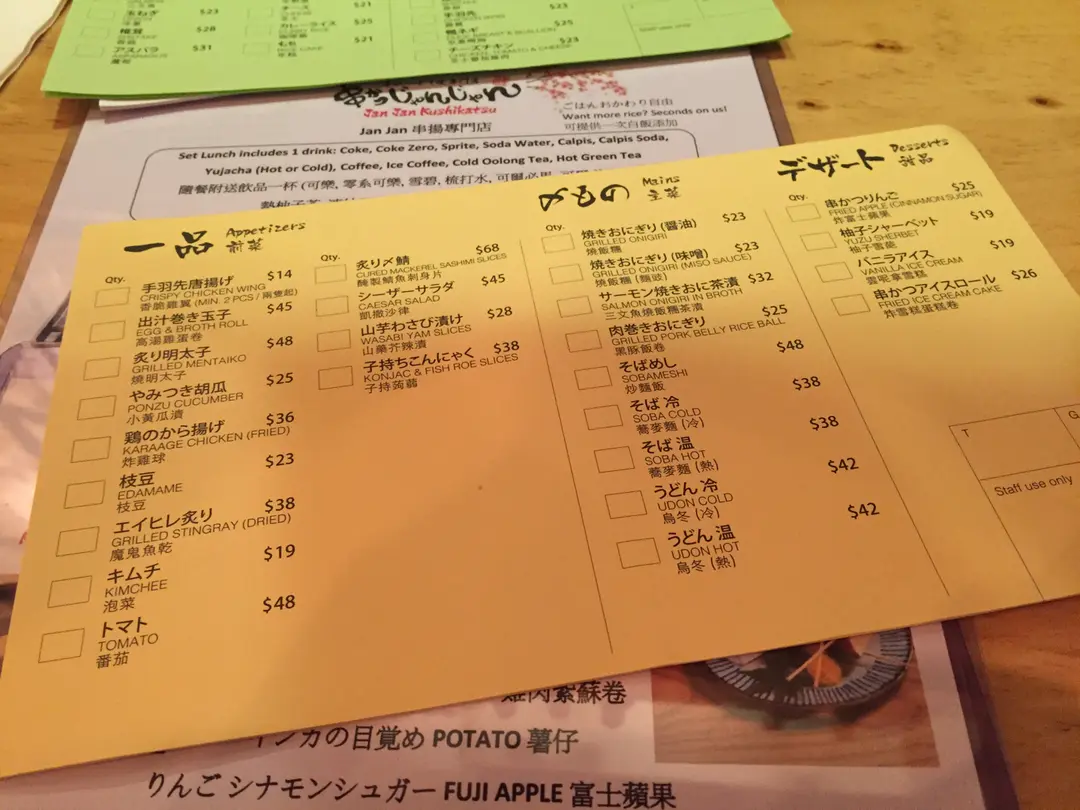 玉ねぎ $23
$28
アスパラ $31
ASPARAGUS
チーズ $21
カレーライス $25
CURRY RICE
もち $21
RICE CAKE
手羽先 $23
鴨ネギ $25
チーズチキン $23
Staff use only
串かつじゃんじゃん
Jan Jan Kushikatsu
Jan Jan 串揚專門店
ごはんおかわり自由
Want more rice? Seconds on us!
可提供一次白飯添加
Set Lunch includes 1 drink: Coke, Coke Zero, Sprite, Soda Water, Calpis, Calpis Soda,
Yujacha (Hot or Cold), Coffee, Ice Coffee, Cold Oolong Tea, Hot Green Tea
隨餐附送飲品一杯 (可樂, 零系可樂, 雪碧, 梳打水, 可爾必思,
一品 Appetizers 前菜
Qty.
手羽先唐揚げ $14
CRISPY CHICKEN WING
香脆雞翼 (MIN. 2 PCS / 兩隻起)
出汁巻き玉子
EGG & BROTH ROLL
高湯雞蛋卷
炙り明太子 $48
GRILLED MENTAIKO
燒明太子
やみつき胡瓜 $25
PONZU CUCUMBER
小黃瓜漬
鶏のから揚げ $36
KARAAGE CHICKEN (FRIED)
炸雞球
枝豆 $23
EDAMAME
枝豆
エイヒレ炙り $38
GRILLED STINGRAY (DRIED)
魔鬼魚乾
キムチ $19
KIMCHEE
泡菜
トマト $48
TOMATO
番茄
Qty.
炙り〆鯖 $68
CURED MACKEREL SASHIMI SLICES
醃製鯖魚刺身片
シーザーサラダ $45
CAESAR SALAD
凱撒沙律
山芋わさび漬け $28
WASABI YAM SLICES
山藥芥辣漬
子持ちこんにゃく $38
KONJAC & FISH ROE SLICES
子持蒟蒻
〆もの Mains 主菜
Qty.
焼きおにぎり (醤油) $23
GRILLED ONIGIRI
燒飯糰
焼きおにぎり (味噌) $23
GRILLED ONIGIRI (MISO SAUCE)
燒飯糰 (麵豉)
サーモン焼きおに茶漬 $32
SALMON ONIGIRI IN BROTH
三文魚燒飯糰茶漬
肉巻きおにぎり $25
GRILLED PORK BELLY RICE BALL
黑豚飯卷
そばめし $48
SOBAMESHI
炒麵飯
そば 冷 $38
SOBA COLD
蕎麥麵 (冷)
そば 温 $38
SOBA HOT
蕎麥麵 (熱)
うどん 冷 $42
UDON COLD
烏冬 (冷)
うどん 温 $42
UDON HOT
烏冬 (熱)
デザート Desserts 甜品
Qty.
串かつりんご $25
FRIED APPLE (CINNAMON SUGAR)
炸富士蘋果
柚子シャーベット $19
YUZU SHERBET
柚子雪葩
バニラアイス $19
VANILLA ICE CREAM
雲呢拿雪糕
串かつアイスロール $26
FRIED ICE CREAM CAKE
炸雪糕蛋糕卷
T
G
Staff use only
雞肉紫蘇卷
インカの目覚め POTATO 薯仔
りんご シナモンシュガー FUJI APPLE 富士蘋果